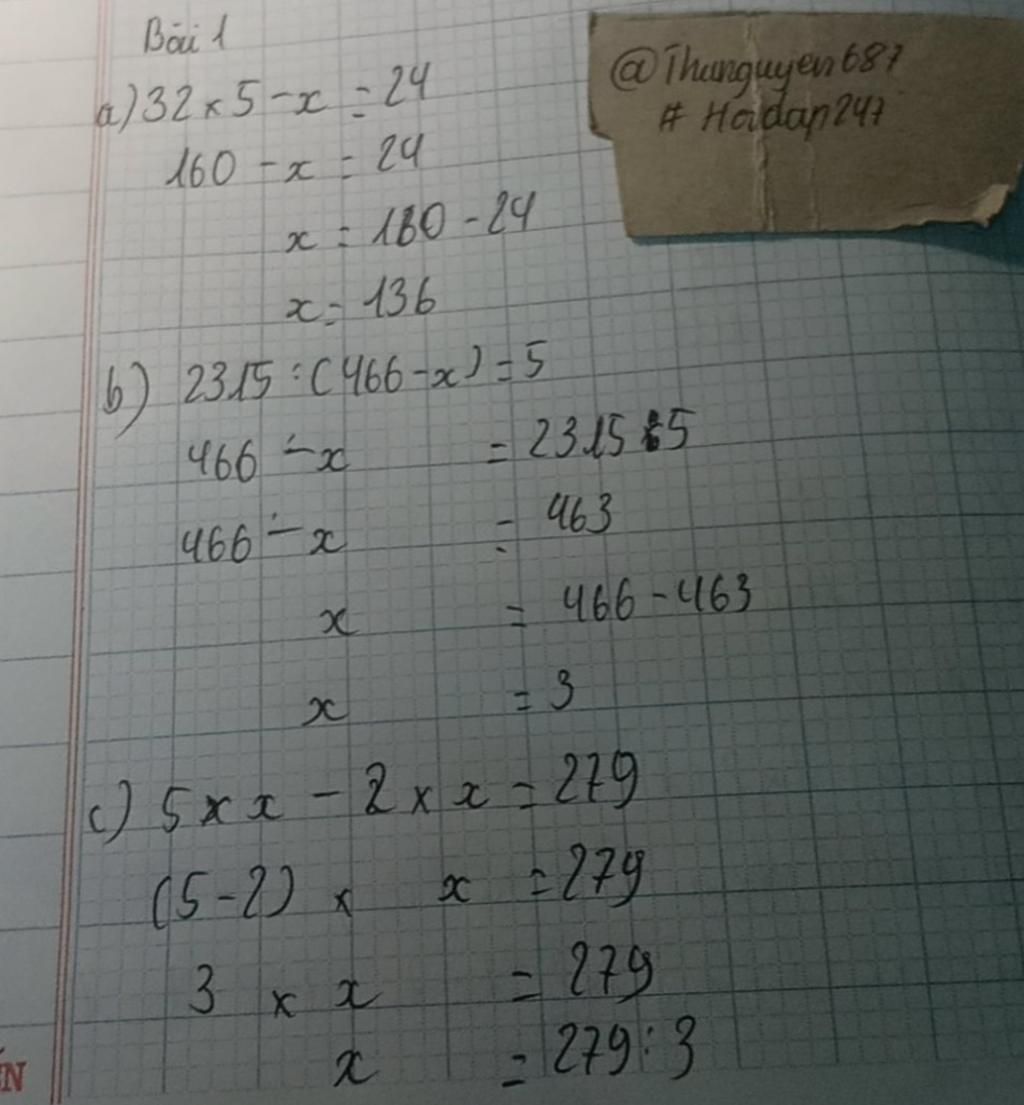 Bài 1
@Thunguyen687
# Hoidap247
a) 32 × 5 - x = 24
160 - x = 24
x = 160 - 24
x = 136
b) 2315 : (466 - x) = 5
466 - x = 2315 : 5
466 - x = 463
x = 466 - 463
x = 3
c) 5 × x - 2 × x = 279
(5-2) × x = 279
3 × x = 279
x = 279 : 3
N